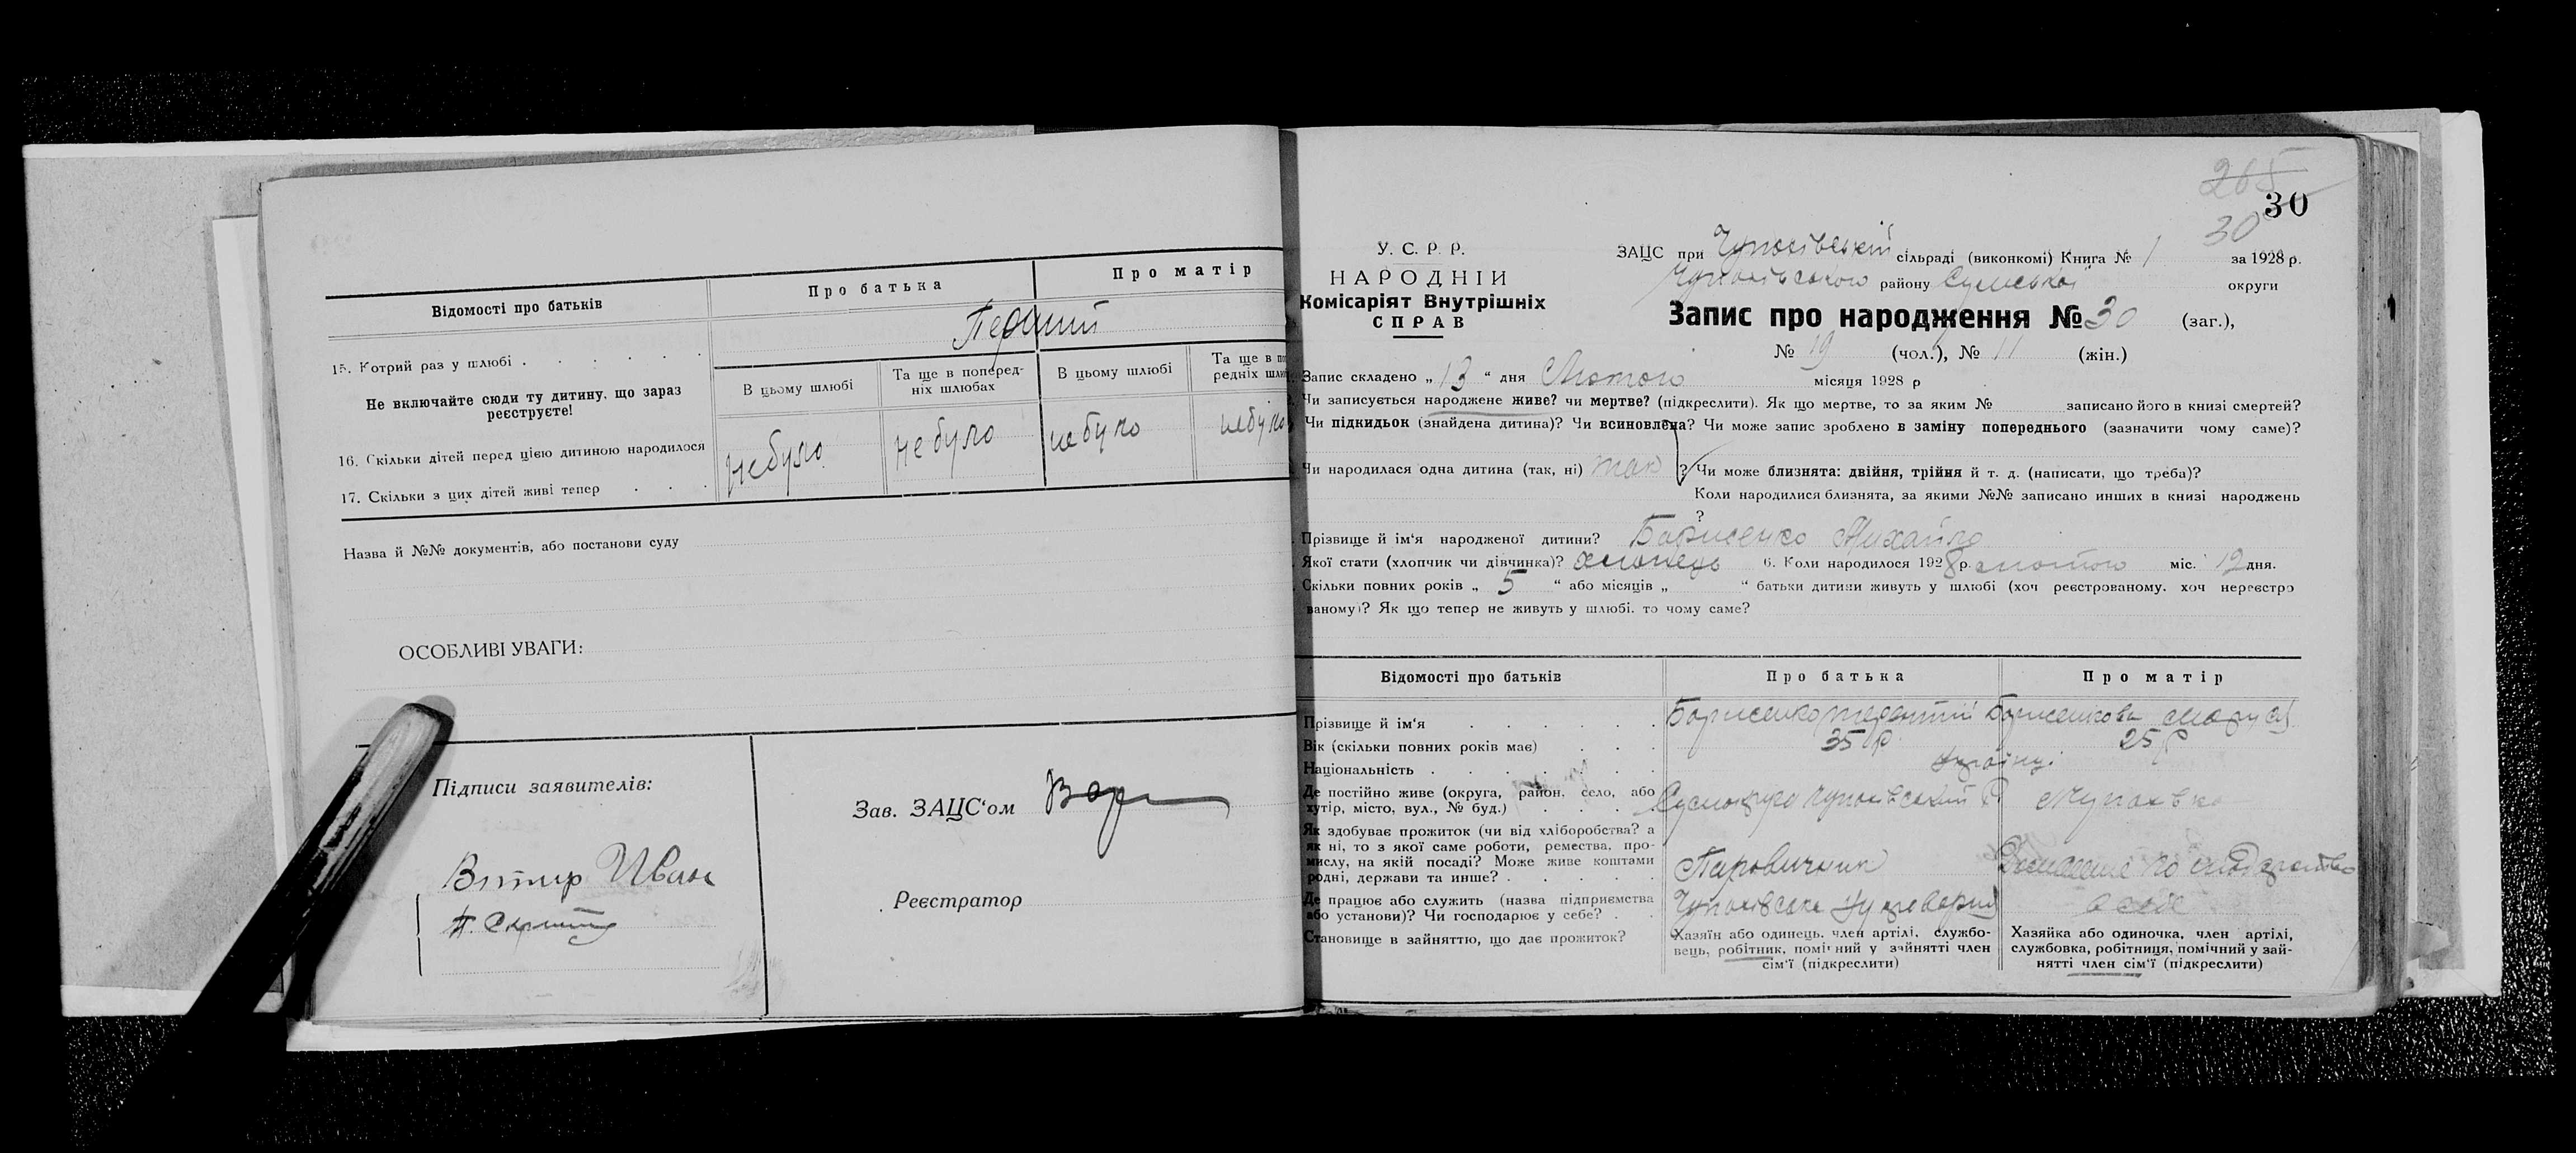 Відомості про батьків
Про батька
Про матір
15. Котрий раз у шлюбі
Перший
Не включайте сюди ту дитину, що зараз реєструєте!
В цьому шлюбі
Та ще в поперед-
ніх шлюбах
В цьому шлюбі
Та ще в по
редніх шлю
16. Скільки дітей перед цією дитиною народилося
не було
не було
не було
не було
17. Скільки з цих дітей живі тепер
Назва й №№ документів, або постанови суду
ОСОБЛИВІ УВАГИ:
Підписи заявителів:
Зав. ЗАЦС‘ом
Иван
Реєстратор
265
30
30
У. С. Р. Р.
НАРОДНІЙ
Комісаріят Внутрішніх
СПРАВ
ЗАЦС при Чупахівській сільраді (виконкомі) Книга № 1 за 1928 р.
Чупахівського району Сумської округи
Запис про народження № 30 (заг.),
№ 19 (чол.), № 11 (жін.)
Запис складено „ 13 “ дня Лютого місяця 1928 р
Чи записується народжене живе? чи мертве? (підкреслити). Як що мертве, то за яким № записано його в книзі смертей?
Чи підкидьок (знайдена дитина)? Чи всиновлена? Чи може запис зроблено в заміну попереднього (зазначити чому саме)?
Чи народилася одна дитина (так, ні) так ? Чи може близнята: двійня, трійня й т. д. (написати, що треба)?
Коли народилися близнята, за якими №№ записано инших в книзі народжень
?
Прізвище й ім‘я народженої дитини? Борисенко Михайло
Якої стати (хлопчик чи дівчинка)? хлопець 6. Коли народилося 1928 р. лютого міс. 12 дня.
Скільки повних років „ 5 “ або місяців „ “ батьки дитини живуть у шлюбі (хоч реєстрованому, хоч нереєстро
ваному)? Як що тепер не живуть у шлюбі, то чому саме?
Відомості про батьків
Про батька
Про матір
Прізвище й ім‘я
Борисенко Терентий
Борисенкова
Вік (скільки повних років має)
35 р
25 р
Національність
Українці
Де постійно живе (округа, район, село, або
хутір, місто, вул., № буд.)
Чупахівський Р
Чупахівка
Як здобуває прожиток (чи від хліборобства? а
як ні, то з якої саме роботи, ремества, про-
мислу, на якій посаді? Може живе коштами
родні, держави та инше?
по господарству
Де працює або служить (назва підприємства
або установи)? Чи господарює у себе?
Чупахівська
в себе
Становище в зайняттю, що дає прожиток?
Хазяїн або одинець, член артілі, службо-
вець, робітник, помічний у зайнятті член
сім‘ї (підкреслити)
Хазяйка або одиночка, член артілі,
службовка, робітниця, помічний у зай-
нятті член сім‘ї (підкреслити)